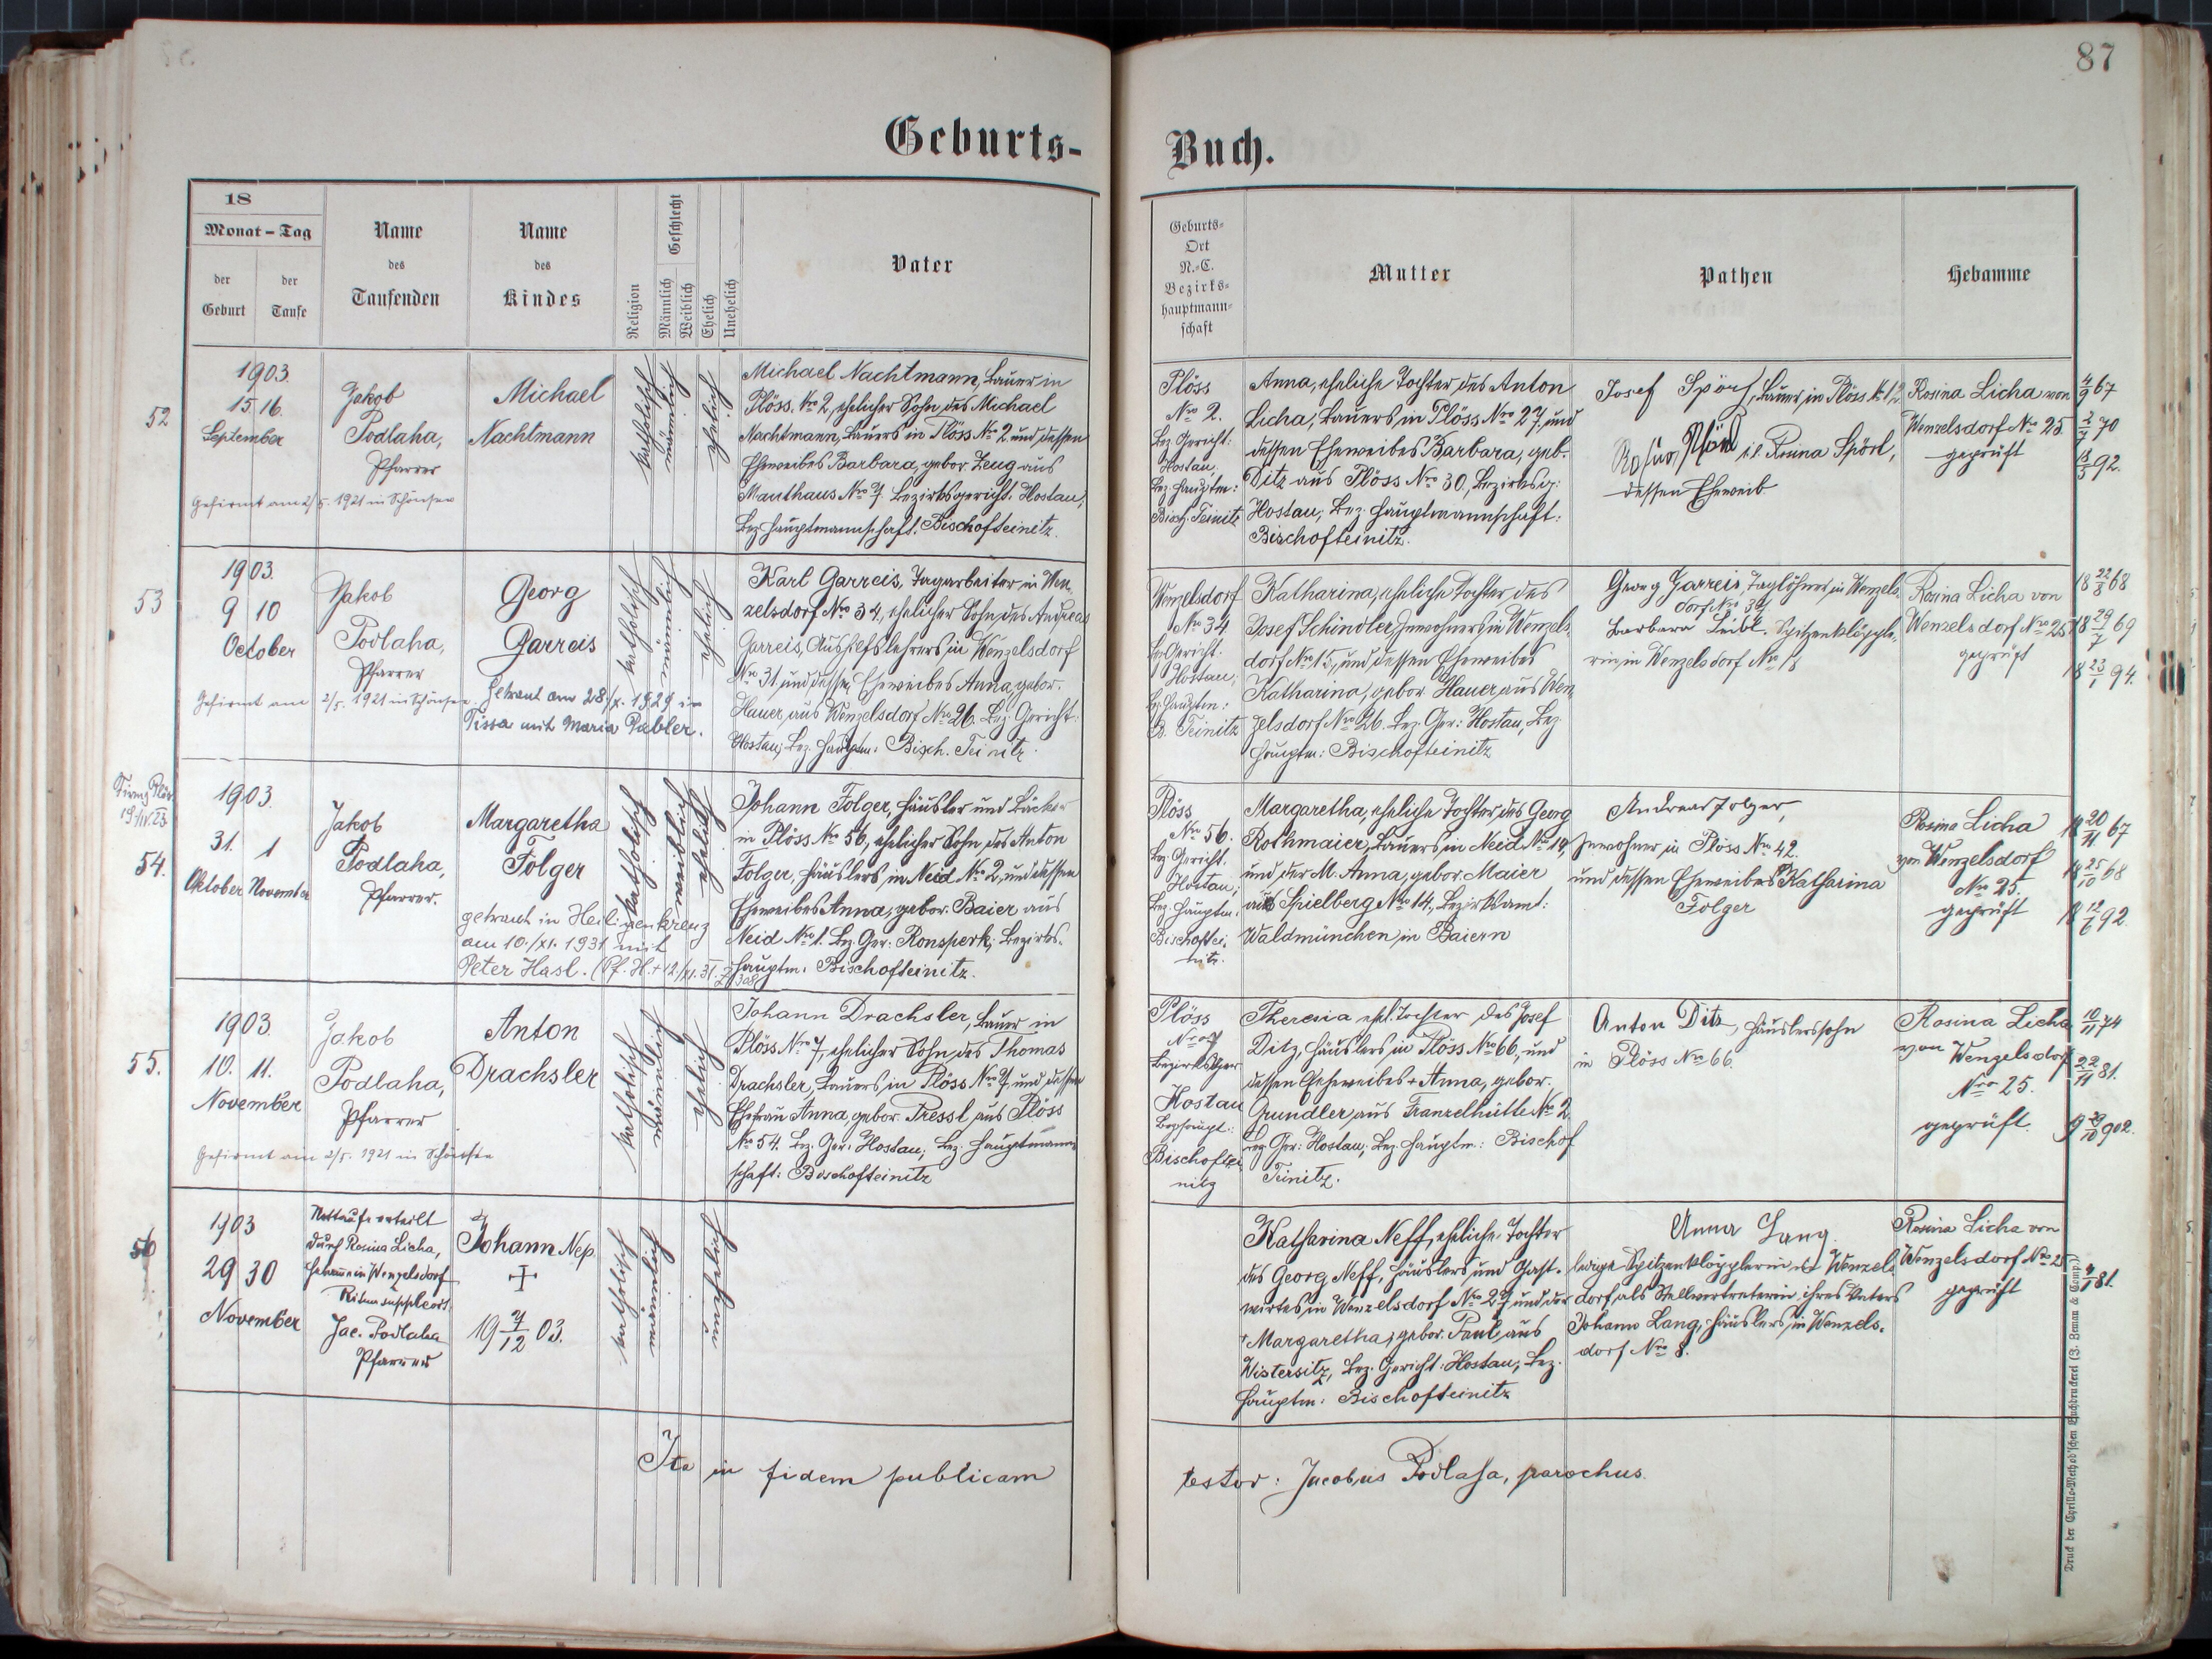 87
Geburts-
Buch.
18
Monat – Tag
der Geburt
der Taufe
Name des Taufenden
Name des Kindes
Religion
Geschlecht
Männlich
Weiblich
Ehelich
Unehelich
Vater
Geburts-
Ort
N.-C.
Bezirks-
hauptmann-
schaft
Mutter
Pathen
Hebamme
52
1903.
15 16.
September
Jakob
Podlaha,
Pfarrer
Gefirmt am 2/5. 1921 in Schönsee
Michael
Nachtmann
katholisch
männlich
ehelich
Michael Nachtmann, Bauer in
Plöss. Nro 2, ehelicher Sohn des Michael
Nachtmann, Bauers in Plöss Nro 2 und dessen
Eheweibes Barbara, gebor. Zeug aus
Mauthaus Nro 7. Bezirksgericht. Hostau,
Bez. Hauptmannschaft. Bischofteinitz.
Plöss
Nro 2.
Bez. Gericht:
Hostau,
Bez. Hauptm:
Bisch. Teinitz
Anna, eheliche Tochter des Anton
Licha, Bauers in Plöss Nro 27, und
dessen Eheweibes Barbara, geb.
Ditz aus Plöss Nro 30, Bezirksg:
Hostau, Bez. Hauptmannschaft:
Bischofteinitz.
Josef Spörl, Bauer, in Plöss Nr 12
i.e. Rosina Spörl,
dessen Eheweib
Rosina Licha von
Wenzelsdorf Nro 25
geprüft
4/9 67
2/7 70
18/5 92.
53
1903.
9 10
October
Jakob
Podlaha,
Pfarrer
Gefirmt am 2/5. 1921 in Schönsee
Georg
Garreis
Getraut am 28/X. 1929 in
Tissa mit Maria Pabler.
katholisch
männlich
ehelich
Karl Garreis, Tagarbeiter in Wen-
zelsdorf Nro 34, ehelicher Sohn des Andreas
Garreis, Aushilfslehrers in Wenzelsdorf
Nro 31, und dessen Eheweibes Anna, gebor.
Hauer, aus Wenzelsdorf Nro 26. Bez. Gericht:
Hostau, Bez. Hauptm: Bisch. Teinitz.
Wenzelsdorf
Nro 34.
Bez. Gericht.
Hostau,
Bez. Hauptm:
B. Teinitz
Katharina, eheliche Tochter des
Josef Schindler, Inwohners in Wenzels-
dorf Nro 15, und dessen Eheweibes
Katharina, gebor. Hauer, aus Wen-
zelsdorf Nro 26. Bez. Ger: Hostau, Bez.
Hauptm: Bischofteinitz
Georg Garreis, Taglöhner, in Wenzels-
dorf Nro 34
Barbara Leibl. Spitzenklöpple-
rin, in Wenzelsdorf Nro 18
Rosina Licha von
Wenzelsdorf Nro 25
geprüft
18 22/8 68
18 29/7 69
18 23/1 94.
54.
1903.
31. 1
Oktober November
Jakob
Podlaha,
Pfarrer.
Margaretha
Folger
getraut in Heiligenkreuz
am 10./XI. 1931 mit
Peter Hasl.
katholisch
weiblich
ehelich
Johann Folger, Häusler und Bäcker
in Plöss Nro 56, ehelicher Sohn des Anton
Folger, Häuslers, in Neid Nro 2, und dessen
Eheweibes Anna, gebor. Baier aus
Neid Nro 1. Bez. Ger: Ronsperk, Bezirks-
hauptm. Bischofteinitz.
Plöss
Nro 56.
Bez. Gericht.
Hostau,
Bez. Hauptm.
Bischoftei-
nitz.
Margaretha, eheliche Tochter des Georg
Rothmaier, Bauers, in Neid Nro 10,
und der M. Anna, gebor. Maier
aus Spielberg Nro 14, Bezirksamt:
Waldmünchen, in Baiern
Andreas Folger,
Inwohner in Plöss Nro 42.
und dessen Eheweibes Katharina
Folger
Rosina Licha
von Wenzelsdorf
Nro 25.
geprüft
18 20/11 67
18 25/10 68
18 12/6 92.
55.
1903.
10. 11.
November
Jakob
Podlaha,
Pfarrer
Gefirmt am 2/5. 1921 in Schönsee
Anton
Drachsler
katholisch
männlich
ehelich
Johann Drachsler, Bauer in
Plöss Nro 7, ehelicher Sohn des Thomas
Drachsler, Bauers, in Plöss Nro 7, und dessen
Ehefrau Anna, gebor. Pressl, aus Plöss
Nro 54. Bez. Ger. Hostau, Bez. Hauptmann-
schaft: Bischofteinitz
Plöss
Nro 7
Bezirksger
Hostau
Bezhaupt.:
Bischoftei-
nitz
Theresia ehel. Tochter des Josef
Ditz, Häuslers in Plöss Nro 66, und
dessen Eheweibes + Anna, gebor.
Grundler, aus Franzelhütte Nro 2
Bez. Ger: Hostau, Bez. Hauptm: Bischof
Teinitz.
Anton Ditz, Häuslerssohn
in Plöss Nro 66.
Rosina Licha
von Wenzelsdorf
Nro 25.
geprüft.
10/11 74
22/11 81.
56
1903
29 30
November
Nottaufe erteilt
durch Rosina Licha,
Hebamme in Wenzelsdorf
Ritus supplevit
Jac. Podlaha
Pfarrer
Johann Nep.
+
19 7/12 03.
katholisch
männlich
unehelich
Katharina Neff, eheliche Tochter
des Georg Neff, Häuslers und Gast-
wirtes, in Wenzelsdorf Nro 27 und der
+ Margaretha, gebor. Paul, aus
Wistersitz, Bez. Gericht: Hostau, Bez.
Hauptm: Bischofteinitz
Anna Lang.
ledige Spitzenklöpplerin in Wenzels-
dorf, als Stellvertreterin ihres Vaters
Johann Lang, Häuslers, in Wenzels-
dorf Nro 8.
Rosina Licha von
Wenzelsdorf Nro 25
geprüft
Ita in fidem publicam
testor: Jacobus Podlaha, parochus.
Druck der Cyrillo-Method'schen Buchdruckerei (J. Zeman & Comp.)